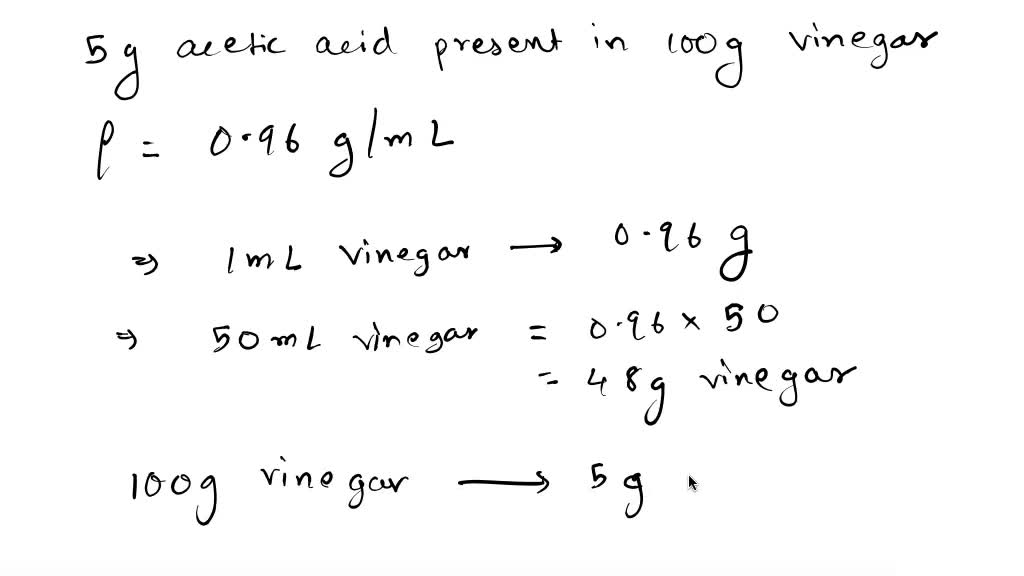 5g acetic acid present in 100g vinegar
ρ = 0.96 g/mL
⇒ 1mL vinegar → 0.96 g
⇒ 50mL vinegar = 0.96 × 50
= 48g vinegar
100g vinegar → 5g